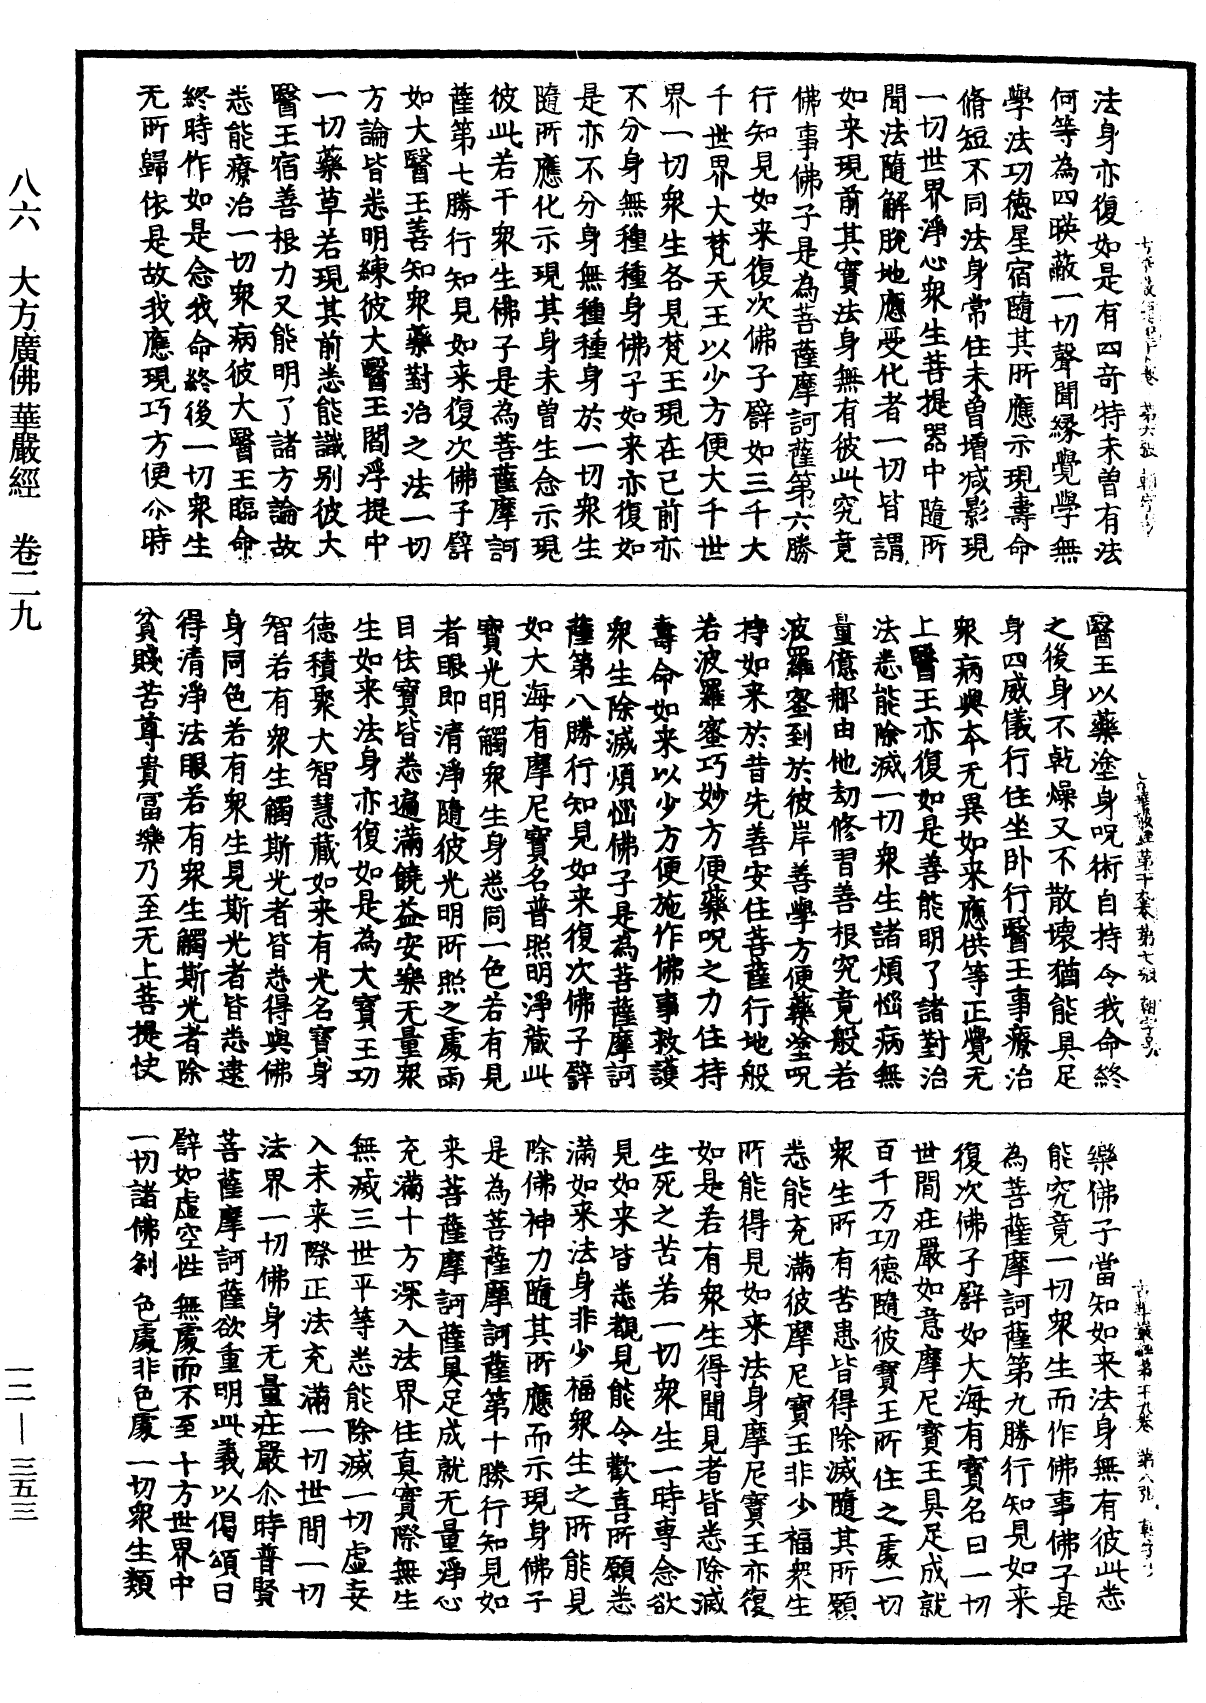 法身亦復如是有四奇特未曽有法
何等為四暎蔽一切聲聞縁覺學無
學法功徳星宿隨其所應示現壽命
脩短不同法身常住未曽増减影現
一切世界淨心衆生菩提器中隨所
聞法隨解脫地應受化者一切皆謂
如来現前其實法身無有彼此究竟
佛事佛子是為菩薩摩訶薩第六勝
行知見如来復次佛子譬如三千大
千世界大梵天王以少方便大千世
界一切衆生各見梵王現在己前亦
不分身無種種身佛子如来亦復如
是亦不分身無種種身於一切衆生
隨所應化示現其身未曽生念示現
彼此若干衆生佛子是為菩薩摩訶
薩第七勝行知見如来復次佛子譬
如大醫王善知衆藥對治之法一切
方論皆悉明練彼大醫王閻浮提中
一切藥草若現其前悉能識别彼大
醫王宿善根力又能明了諸方論故
悉能療治一切衆病彼大醫王臨命
終時作如是念我命終後一切衆生
无所歸依是故我應現巧方便尒時
醫王以藥塗身呪術自持令我命終
之後身不乾燥又不散壞猶能具足
身四威儀行住坐卧行醫王事療治
衆病與本无異如来應供等正覺无
上醫王亦復如是善能明了諸對治
法悉能除滅一切衆生諸煩惱病無
量億那由他劫修習善根究竟般若
波羅蜜到於彼岸善學方便藥塗呪
持如来於昔先善安住菩薩行地般
若波羅蜜巧妙方便藥呪之力住持
壽命如来以少方便施作佛事救護
衆生除滅煩惱佛子是為菩薩摩訶
薩第八勝行知見如来復次佛子譬
如大海有摩尼寶名普照明淨藏此
寶光明觸衆生身悉同一色若有見
者眼即清淨隨彼光明所照之處雨
目佉寶皆悉遍滿饒益安樂无量衆
生如来法身亦復如是為大寶王功
德積聚大智慧藏如来有光名寶身
智若有衆生觸斯光者皆悉得與佛
身同色若有衆生見斯光者皆悉逮
得清淨法眼若有衆生觸斯光者除
貧賤苦尊貴冨樂乃至无上菩提快
樂佛子當知如来法身無有彼此悉
能究竟一切衆生而作佛事佛子是
為菩薩摩訶薩第九勝行知見如来
復次佛子譬如大海有寳名曰一切
世間莊嚴如意摩尼寳王具足成就
百千万功德隨彼寳王所住之處一切
衆生所有苦患皆得除滅隨其所願
悉能充滿彼摩尼寶王非少福衆生
所能得見如来法身摩尼寶王亦復
如是若有衆生得聞見者皆悉除滅
生死之苦若一切衆生一時專念欲
見如来皆悉覩見能令歡喜所願悉
滿如来法身非少福衆生之所能見
除佛神力隨其所應而示現身佛子
是為菩薩摩訶薩第十勝行知見如
来菩薩摩訶薩具足成就无量淨心
充滿十方深入法界住真實際無生
無滅三世平等悉能除滅一切虛妄
入未来際正法充滿一切世間一切
法界一切佛身无量莊嚴尒時普賢
菩薩摩訶薩欲重明此義以偈頌曰
譬如虛空性 無處而不至 十方世界中
一切諸佛刹 色處非色處 一切衆生類
八六 大方廣佛華嚴經 卷二九
一二—三五三